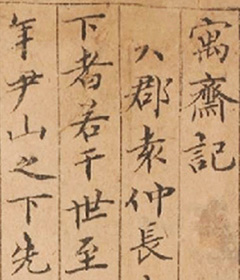 寓齋記
郡袁仲長
下者若干世至
年尹山之下先